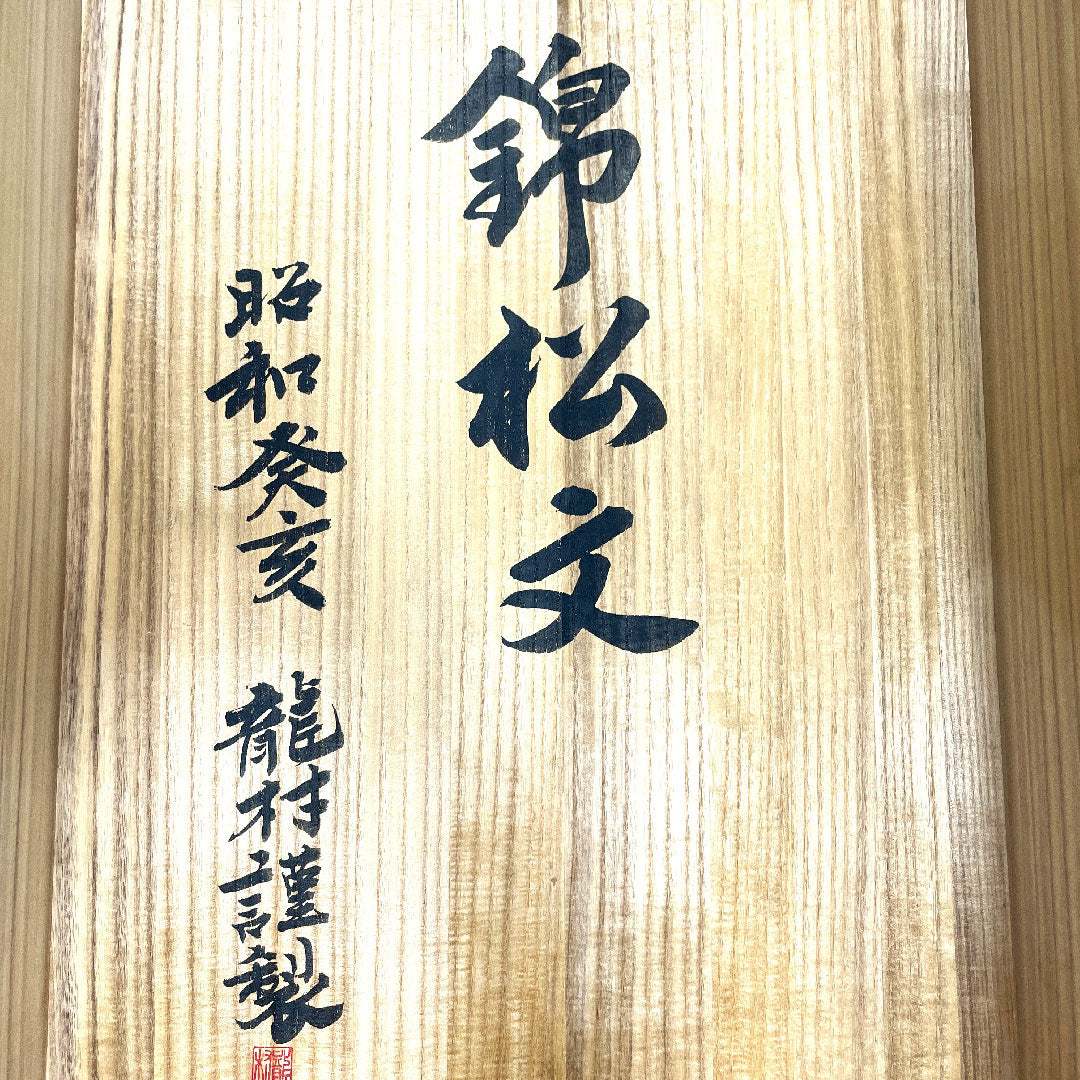 錦松文
昭和癸亥 龍村謹製